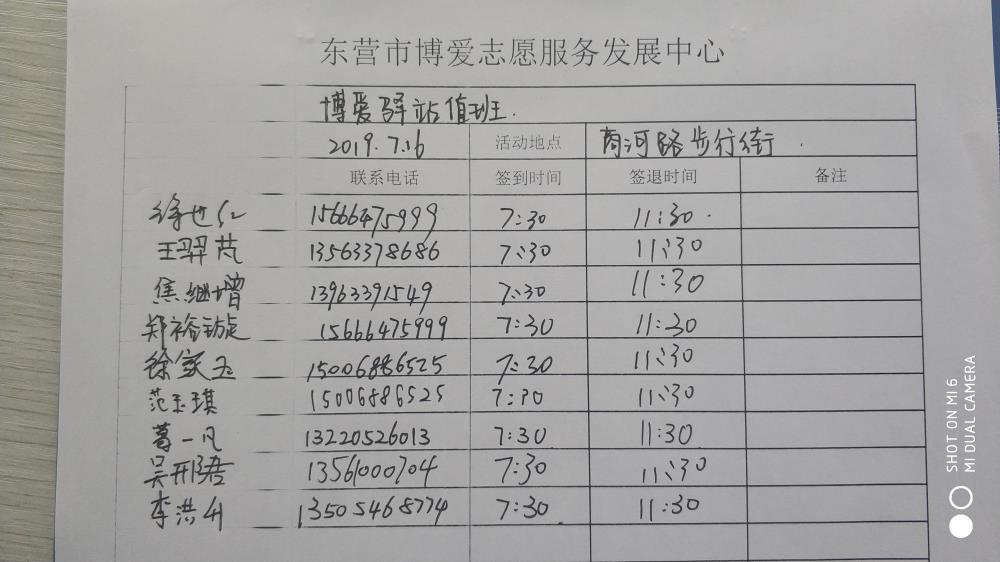 东营市博爱志愿服务发展中心
博爱驿站值班.
2019.7.16 活动地点 商河路步行街.
联系电话 签到时间 签退时间 备注
徐世仁 15666475999 7:30 11:30.
王羿芃 13563378686 7:30 11:30
焦继增 13963391549 7:30 11:30
郑裕璇 15666475999 7:30 11:30
徐家玉 15006886525 7:30 11:30
范玉琪 15006886525 7:30 11:30
葛一凡 13220526013 7:30 11:30
吴邢珺 13561000704 7:30 11:30
李洪升 13505468774 7:30 11:30
SHOT ON MI 6
MI DUAL CAMERA